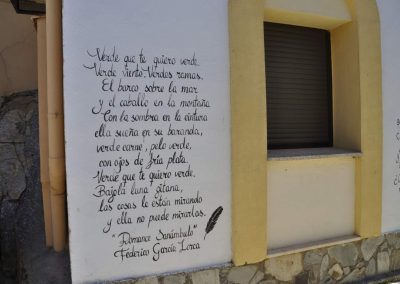 Verde que te quiero verde.
Verde viento. Verdes ramas.
El barco sobre la mar
y el caballo en la montaña
Con la sombra en la cintura
ella sueña en su baranda,
verde carne, pelo verde,
con ojos de fría plata.
Verde que te quiero verde.
Bajo la luna gitana,
las cosas le están mirando
y ella no puede mirarlas.
"Romance Sonámbulo"
Federico García Lorca